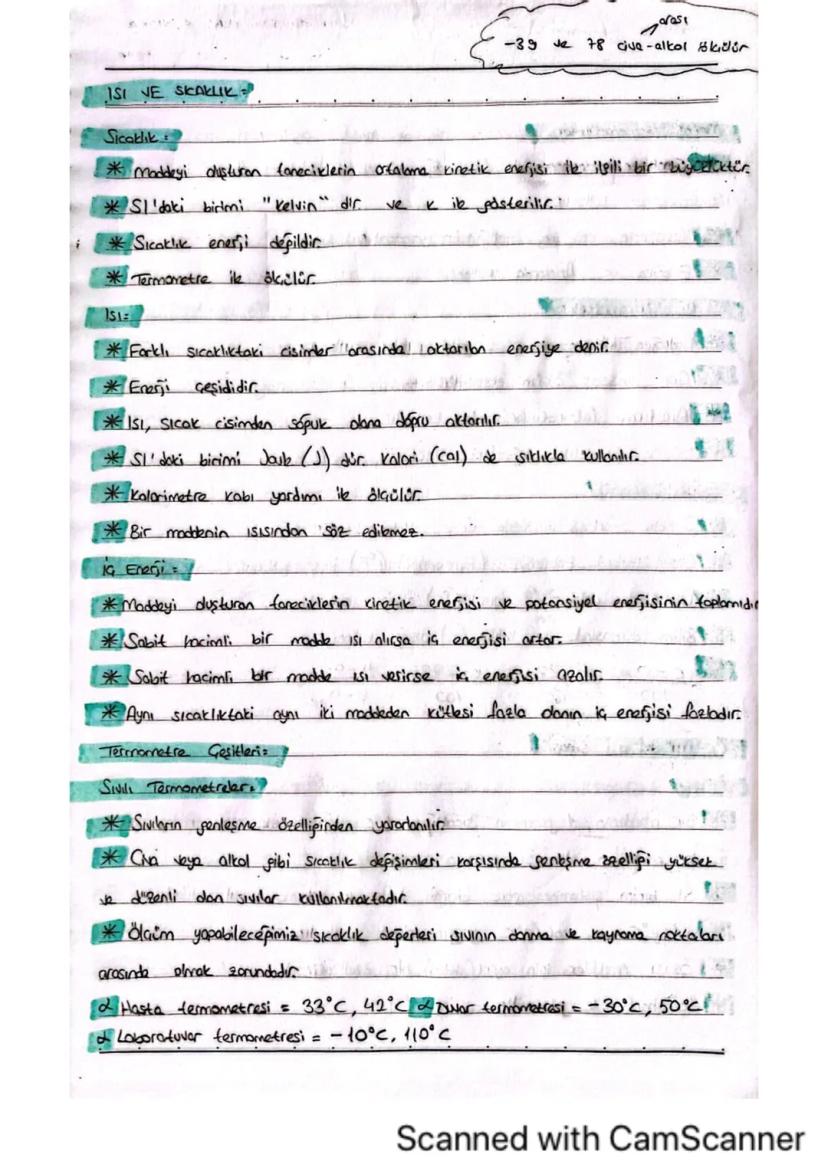 arası
-39 ve 78 civa-alkol ölçülür
ISI VE SICAKLIK =
Sıcaklık =
* Maddeyi oluşturan taneciklerin ortalama kinetik enerjisi ile ilgili bir büyüklüktür.
* SI'daki birimi "Kelvin" dir. ve K ile gösterilir.
* Sıcaklık enerji değildir.
* Termometre ile ölçülür.
Isı =
* Farklı sıcaklıktaki cisimler arasında aktarılan enerjiye denir.
* Enerji çeşididir.
* Isı, sıcak cisimden soğuk olana doğru aktarılır.
* SI'daki birimi Joule (J) dür. Kalori (cal) de sıklıkla kullanılır.
* Kalorimetre kabı yardımı ile ölçülür.
* Bir maddenin ısısından söz edilemez.
İç Enerji =
* Maddeyi oluşturan taneciklerin kinetik enerjisi ve potansiyel enerjisinin toplamıdır
* Sabit hacimli bir madde ısı alırsa iç enerjisi artar.
* Sabit hacimli bir madde ısı verirse iç enerjisi azalır.
* Aynı sıcaklıktaki aynı iki maddeden kütlesi fazla olanın iç enerjisi fazladır.
Termometre Çeşitleri =
Sıvılı Termometreler =
* Sıvıların genleşme özelliğinden yararlanılır.
* Cıva veya alkol gibi sıcaklık değişimleri karşısında genleşme özelliği yüksek
ve düzenli olan sıvılar kullanılmaktadır.
* Ölçüm yapabileceğimiz sıcaklık değerleri sıvının donma ve kaynama noktaları
arasında olmak zorundadır.
α Hasta termometresi = 33°C, 42°C α Duvar termometresi = -30°C, 50°C
α Laboratuvar termometresi = -10°C, 110°C
Scanned with CamScanner